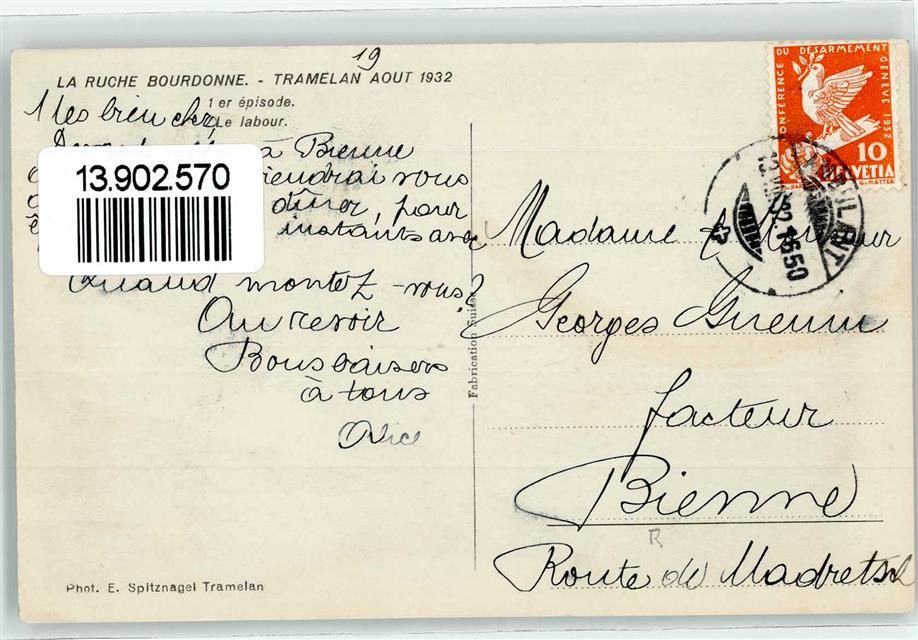 19
LA RUCHE BOURDONNE. - TRAMELAN AOUT 1932
1 er épisode.
Le labour.
Mes bien chers
à Bienne
viendrai vous
dîner, pour
instants avec
Quand montez-vous?
Au revoir
Bons baisers
à tous
Alice
13.902.570
Phot. E. Spitznagel Tramelan
Fabrication Suisse
CONFERENCE DU DESARMEMENT GENEVE 1932
10
HELVETIA
16 50
Madame & Monsieur
Georges Guenin
facteur
Bienne
Route de Madretsch